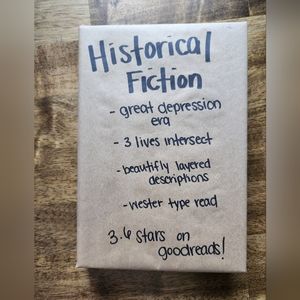 Historical
Fiction
- great depression
era
- 3 lives intersect
- beautifly layered
descriptions
- wester type read
3.6 stars on
goodreads!